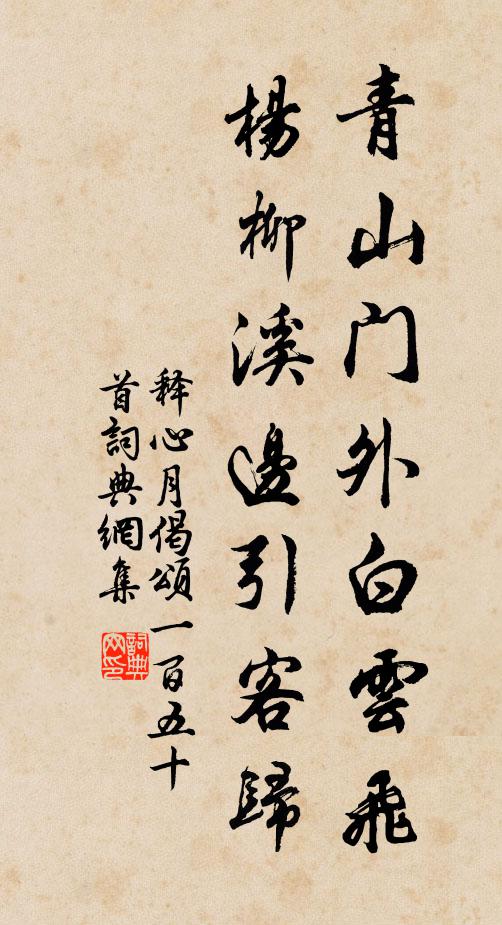 青山門外白雲飛
楊柳溪邊引客歸
释心月偈頌一百五十
首詞典網集
詞典网印